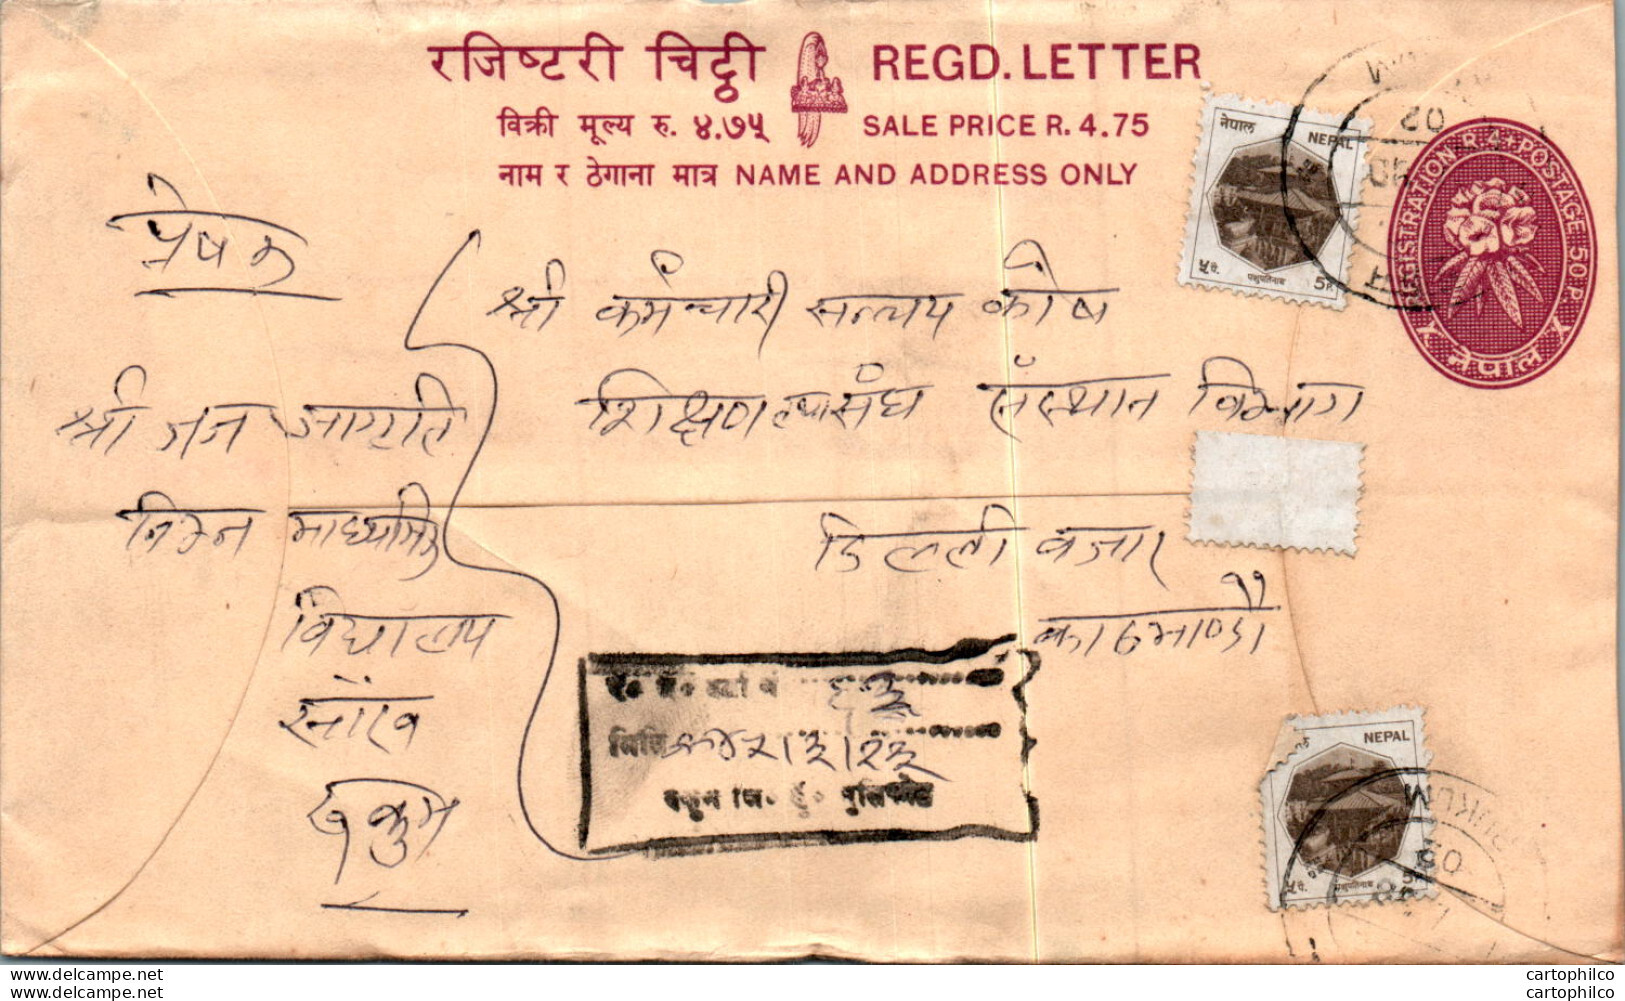 रजिष्टरी चिट्ठी REGD. LETTER
विक्री मूल्य रु. ४.७५ SALE PRICE R. 4.75
नाम र ठेगाना मात्र NAME AND ADDRESS ONLY
नेपाल NEPAL
५ पै. पशुपतिनाथ 5P.
REGISTRATION POSTAGE 50P.
नेपाल
प्रेषक
श्री जन जागृति
निम्न माध्यमिक
विद्यालय
रुकुम
श्री कर्मचारी सन्चय कोष
शिक्षण संस्थान विभाग
डिल्ली बजार
काठमाण्डौ
मिति
NEPAL
५ पै. पशुपतिनाथ 5P.
RUKUM
www.delcampe.net
www.delcampe.net
cartophilco
cartophilco